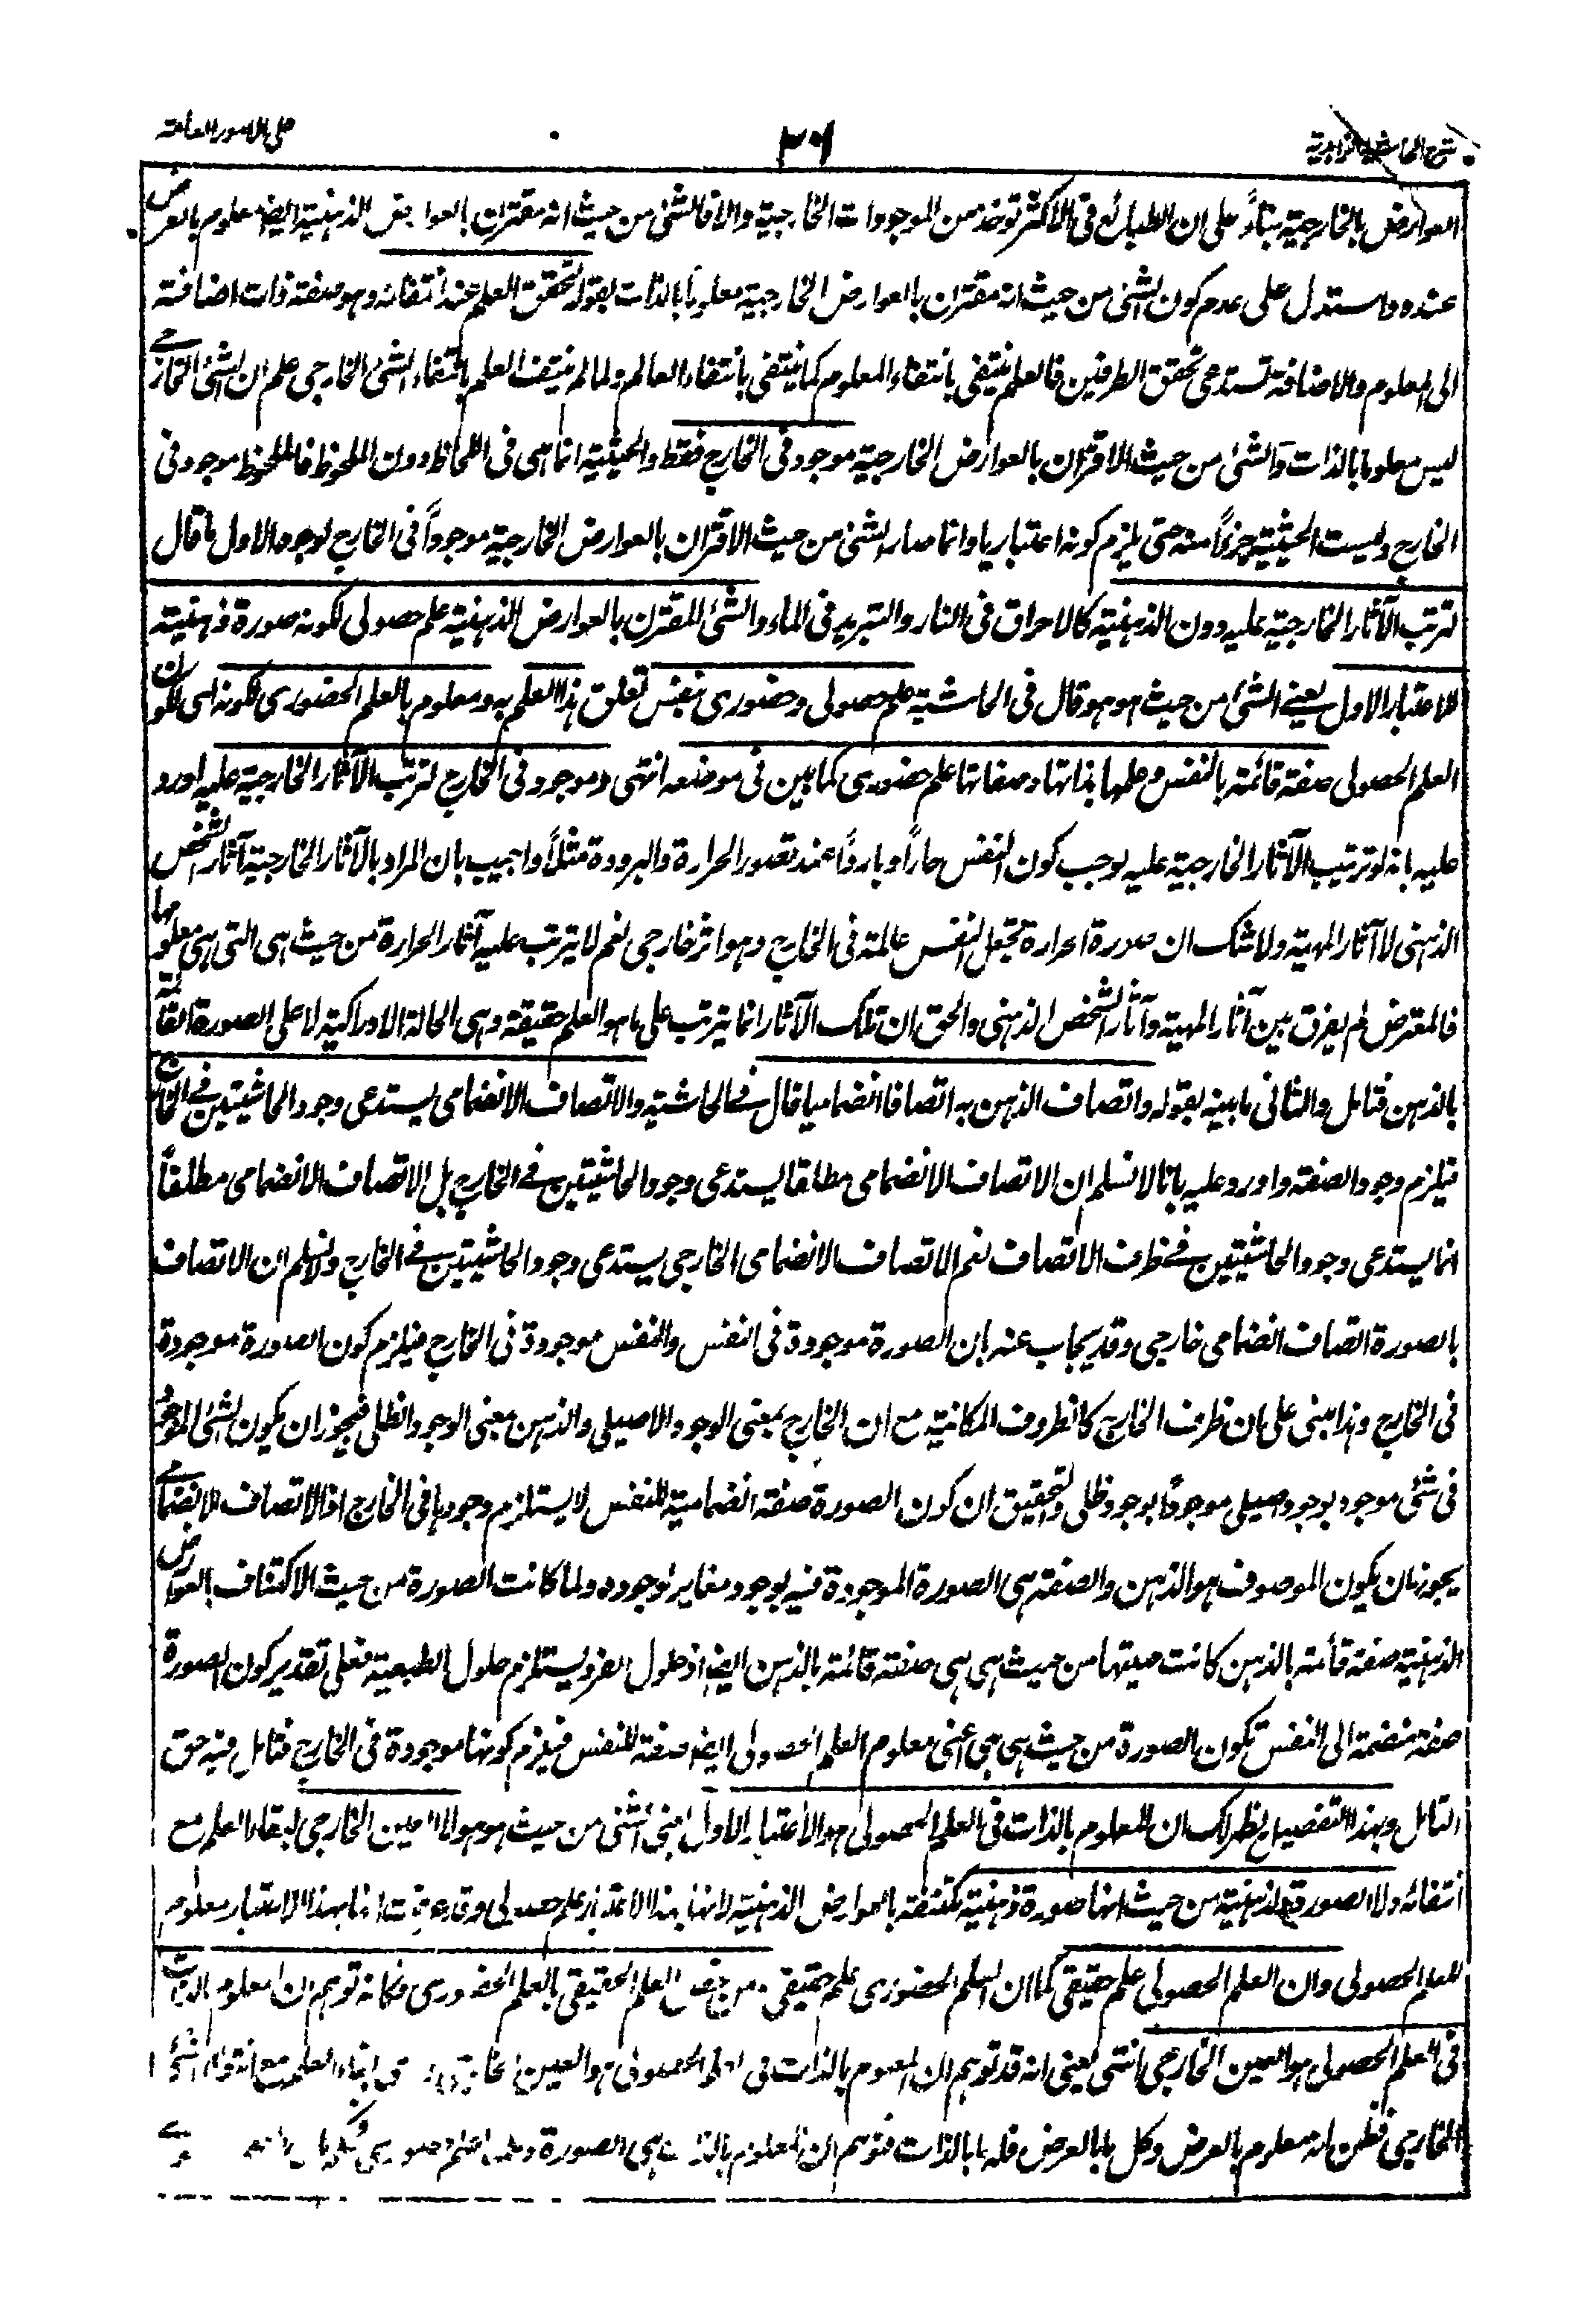 شرح الحاشية الزاهدية
٣٠٦
على الامور العامة
العوارض بالخارجية بناءً على ان الطبائع فى الاكثر توخذ من الموجودات الخارجية والا فالشئ من حيث انه مقترن بالعوارض الذهنية ايضا معلوم بالعرض
عنده واستدل على عدم كون الشئ من حيث انه مقترن بالعوارض الخارجية معلوما بالذات بقوله لتحقق العلم عند انتفائه وهو صفة ذات اضافة
الى المعلوم والاضافة تستدعى تحقق الطرفين فالعلم ينتفى بانتفاء المعلوم كما ينتفى بانتفاء العالم ولما لم ينتف العلم بانتفاء الشئ الخارجى علم ان الشئ الخارجے
ليس معلوما بالذات والشئ من حيث الاقتران بالعوارض الخارجية موجود فى الخارج فقط والحيثية انما هى فى اللحاظ دون الملحوظ فالملحوظ موجود فى
الخارج وليست الحيثية جزءًا منه حتى يلزم كونه اعتباريا وانما صار الشئ من حيث الاقتران بالعوارض الخارجية موجوداً فى الخارج لوجوه الاول ما قال
لترتب الآثار الخارجية عليه دون الذهنية كالاحراق فى النار والتبريد فى الماء والشئ المقترن بالعوارض الذهنية علم حصولى لكونه صورة ذهنية
للاعتبار الاول يعنے الشئ من حيث هو هو قال فى الحاشية علم حصولى وحضورى بنفس تعلق هذا العلم به ومعلوم بالعلم الحضورى لكونه اى لكون
العلم الحصولى صفة قائمة بالنفس وعلمها بذاتها وصفاتها علم حضورى كما بين فى موضعه انتهى وموجود فى الخارج لترتب الآثار الخارجية عليه اورد
عليه بانه لو ترتيب الآثار الخارجية عليه يوجب كون النفس حاراً وبارداً عند تصور الحرارة والبرودة مثلاً واجيب بان المراد بالآثار الخارجية آثار الشخص
الذهنى لا آثار المهية ولا شك ان صورة الحرارة تجعل النفس عالمة فى الخارج وهو اثر خارجى نعم لا يترتب عليه آثار الحرارة من حيث هى التى هى معلومها
فالمعترض لم يفرق بين آثار المهية وآثار الشخص الذهنى والحق ان تلك الآثار انما يترتب على ما هو العلم حقيقة وهى الحالة الادراكية لا على الصورة القائمة
بالذهن فتامل والثانى ما بينه بقوله واتصاف الذهن به اتصافا انضماميا قال فے الحاشية والاتصاف الانضمامى يستدعى وجود الحاشيتين فے الخارج
فيلزم وجود الصفة واورد عليه بانا لا نسلم ان الاتصاف الانضمامى مطلقا يستدعى وجود الحاشيتين فے الخارج بل الاتصاف الانضمامى مطلقاً
انما يستدعى وجود الحاشيتين فے ظرف الاتصاف نعم الاتصاف الانضمامى الخارجى يستدعى وجود الحاشيتين فے الخارج ولا نسلم ان الاتصاف
بالصورة اتصاف انضمامى خارجى وقد يجاب عنه بان الصورة موجودة فى النفس والنفس موجودة فى الخارج فيلزم كون الصورة موجودة
فى الخارج وهذا مبنى على ان ظرف الخارج كالظروف المكانية مع ان الخارج بمعنى الوجود الاصيلى والذهن بمعنى الوجود الظلى فيجوز ان يكون الشئ الموجود
فى شئ موجود بوجود اصيلى موجودًا بوجود ظلى والتحقيق ان كون الصورة صفة انضمامية للنفس لا يستلزم وجودها فى الخارج اذ الاتصاف الانضمامے
يجوز ان يكون الموصوف هو الذهن والصفة هى الصورة الموجودة فيه بوجود مغاير لوجوده ولما كانت الصورة من حيث الاكتناف بالعوارض
الذهنية صفة قائمة بالذهن كانت مهيتها من حيث هى هى صفة قائمة بالذهن ايضا اذ حلول الفرد يستلزم حلول الطبيعة فعلى تقدير كون الصورة
صفة منضمة الى النفس تكون الصورة من حيث هى هى اعنى معلوم العلم الحصولى ايضا صفة للنفس فيلزم كونها موجودة فى الخارج فتامل فيه حق
التامل وبهذا التفصيل يظهر لك ان المعلوم بالذات فى العلم الحصولى هو الاعتبار الاول اعنى الشئ من حيث هو هو لا العين الخارجى لبقاء العلم مع
انتفائه ولا الصورة الذهنية من حيث انها صورة ذهنية مكتنفة بالعوارض الذهنية لانها بهذا الاعتبار علم حصولى وقد عرفت انها بهذا الاعتبار معلوم
للعلم الحصولى وان العلم الحصولى علم حقيقى كما ان العلم الحضورى علم حقيقى ومن خص العلم الحقيقى بالعلم الحضورى فكانه توهم ان المعلوم بالذات
فى العلم الحصولى هو العين الخارجى انتهى يعنى انه قد توهم ان المعلوم بالذات فى العلم الحصولى هو العين الخارجى بقاء العلم مع انتفاء الشئ
الخارجى فظن انه معلوم بالعرض وكل ما بالعرض فله ما بالذات فتوهم ان المعلوم بالذات هى الصورة